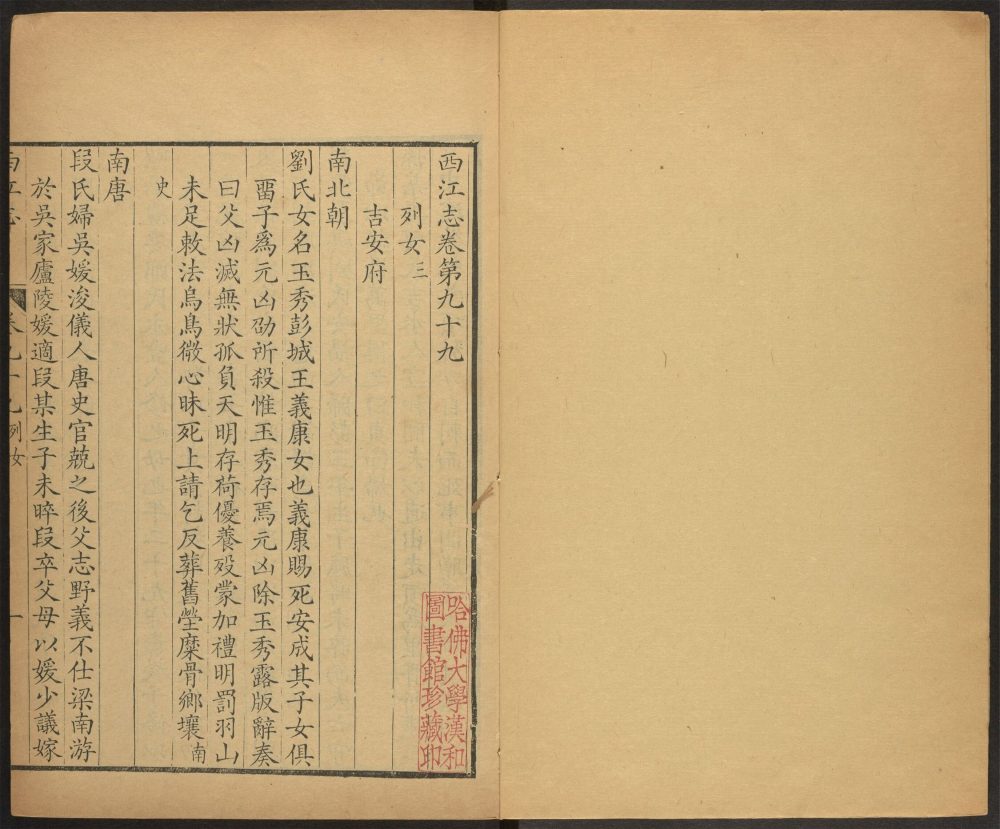 西江志卷第九十九
列女三
吉安府
南北朝
劉氏女名玉秀彭城王義康女也義康賜死安成其子女俱
畱子爲元凶劭所殺惟玉秀存焉元凶除玉秀露版辭奏
曰父凶滅無狀孤負天明存荷優養殁蒙加禮明罰羽山
未足敕法烏鳥微心昧死上請乞反葬舊塋糜骨鄉壤南
史
南唐
段氏婦吳媛浚儀人唐史官兢之後父志野義不仕梁南游
於吳家廬陵媛適段某生子未晬段卒父母以媛少議嫁
西江志
卷九十九列女
一
哈佛大學漢和
圖書館珍藏印